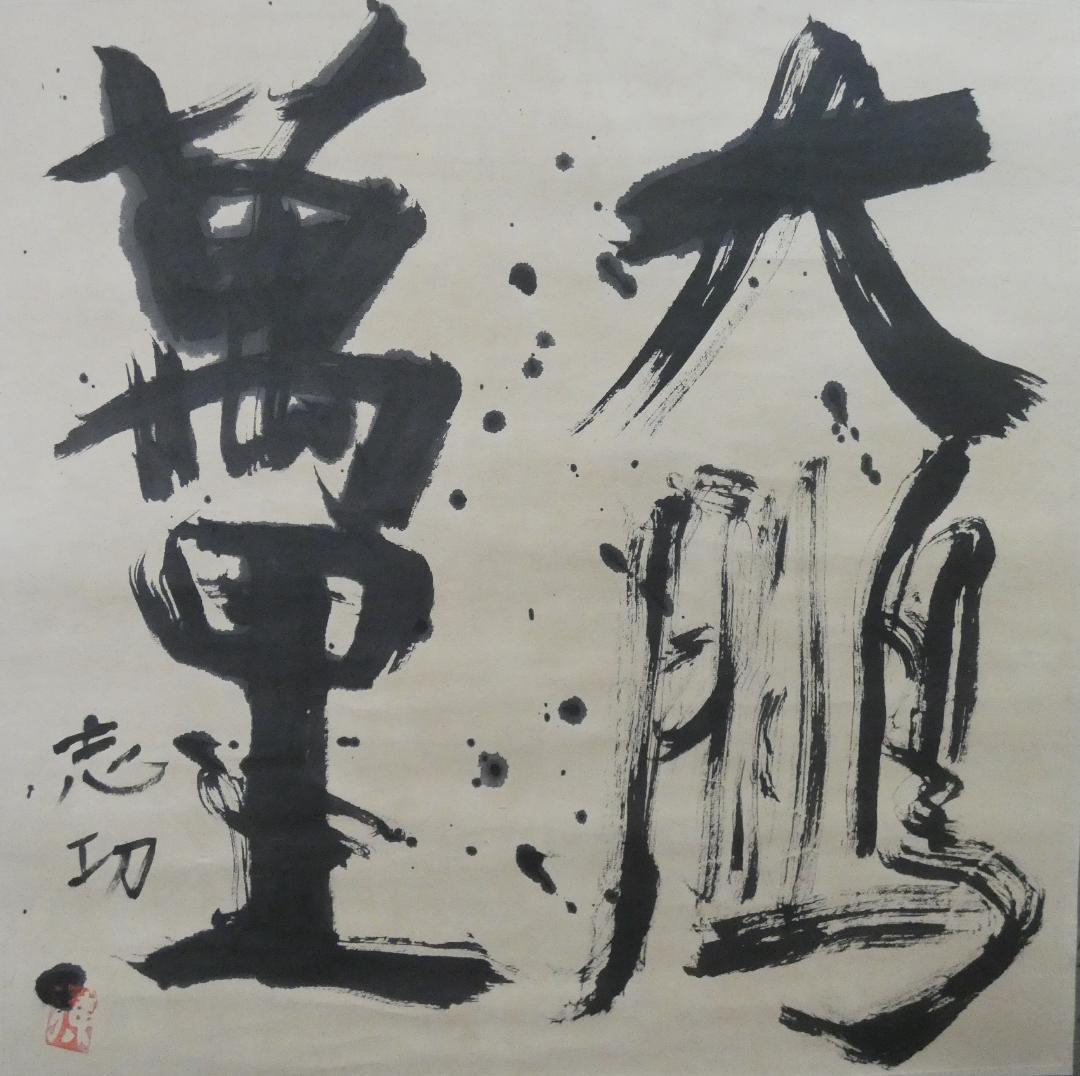 大鵬
萬里
志功